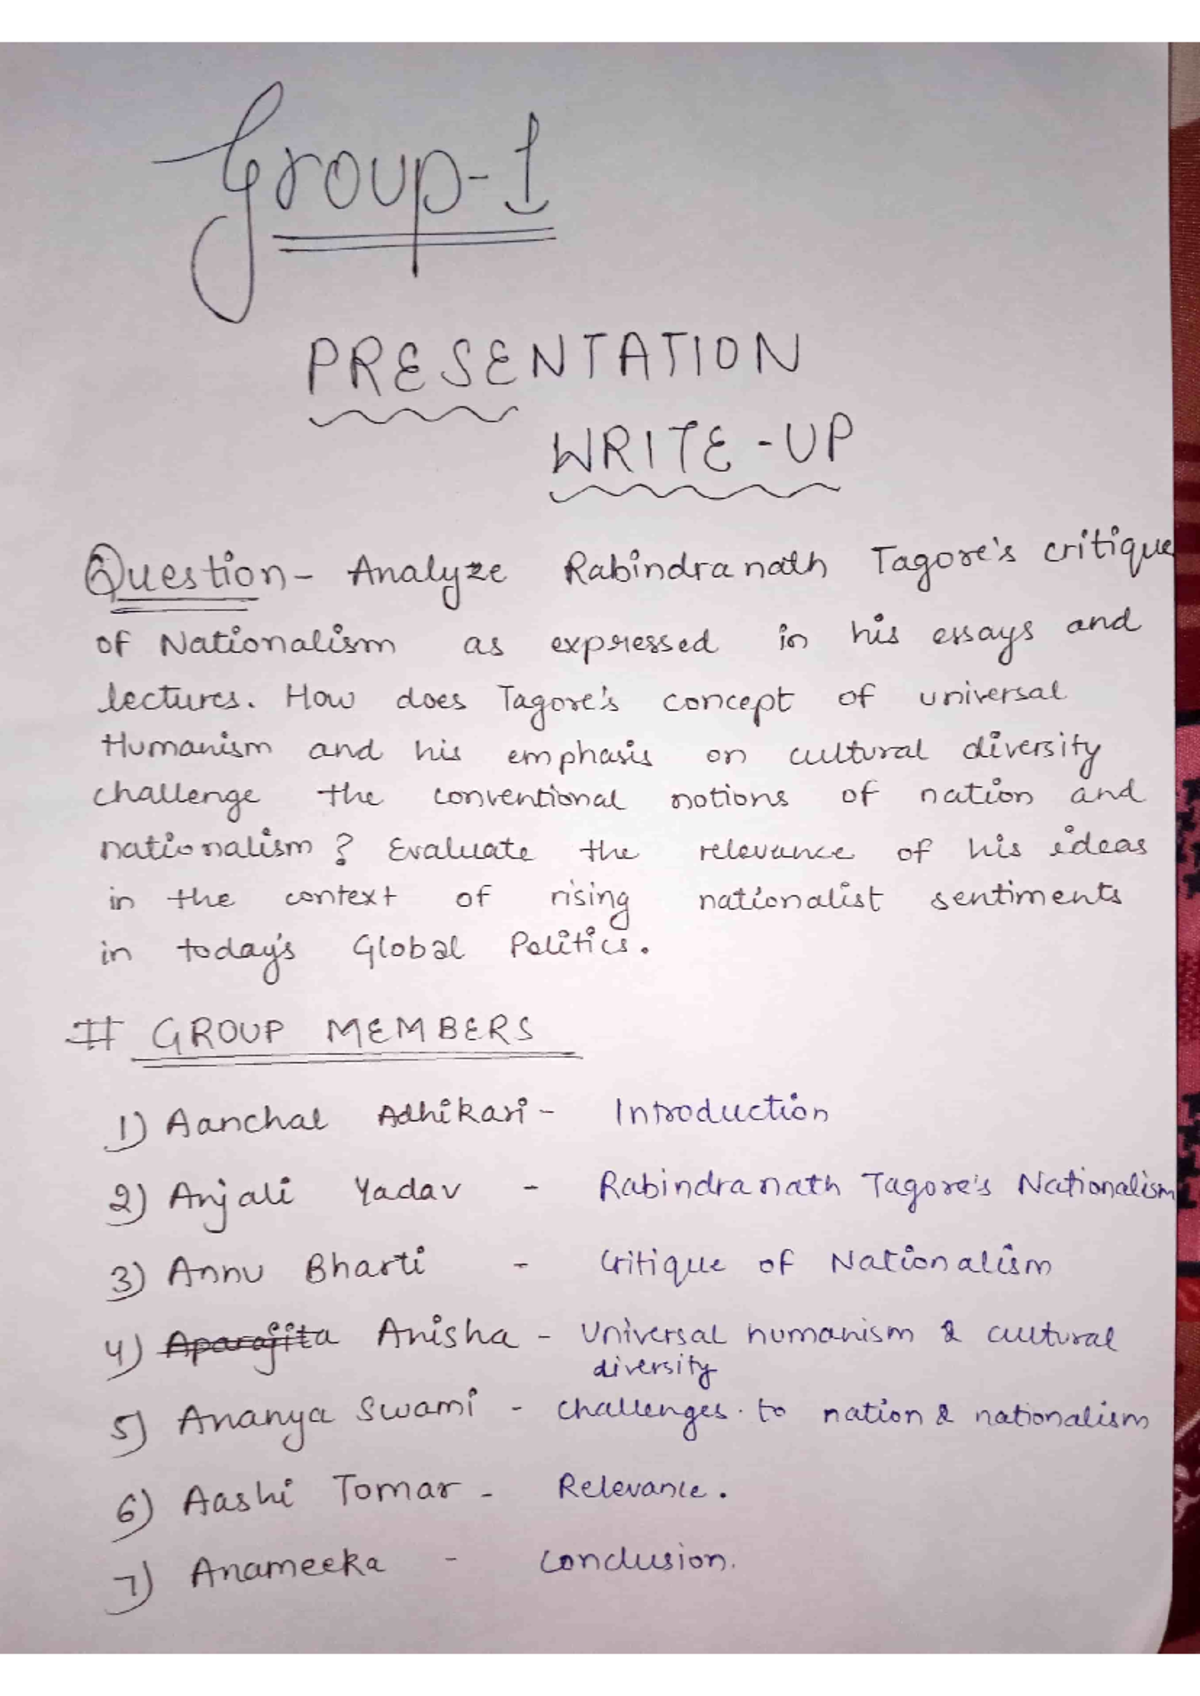 Group-1
PRESENTATION
WRITE-UP
Question- Analyze Rabindranath Tagore's critique
of Nationalism as expressed in his essays and
lectures. How does Tagore's concept of universal
Humanism and his emphasis on cultural diversity
challenge the conventional notions of nation and
nationalism? Evaluate the relevance of his ideas
in the context of rising nationalist sentiments
in today's Global Politics.
# GROUP MEMBERS
1) Aanchal Adhikari - Introduction
2) Anjali Yadav - Rabindranath Tagore's Nationalism
3) Annu Bharti - Critique of Nationalism
4) Aparajita Anisha - Universal humanism & cultural
diversity
5) Ananya Swami - challenges to nation & nationalism
6) Aashi Tomar - Relevance.
7) Anameeka - Conclusion.